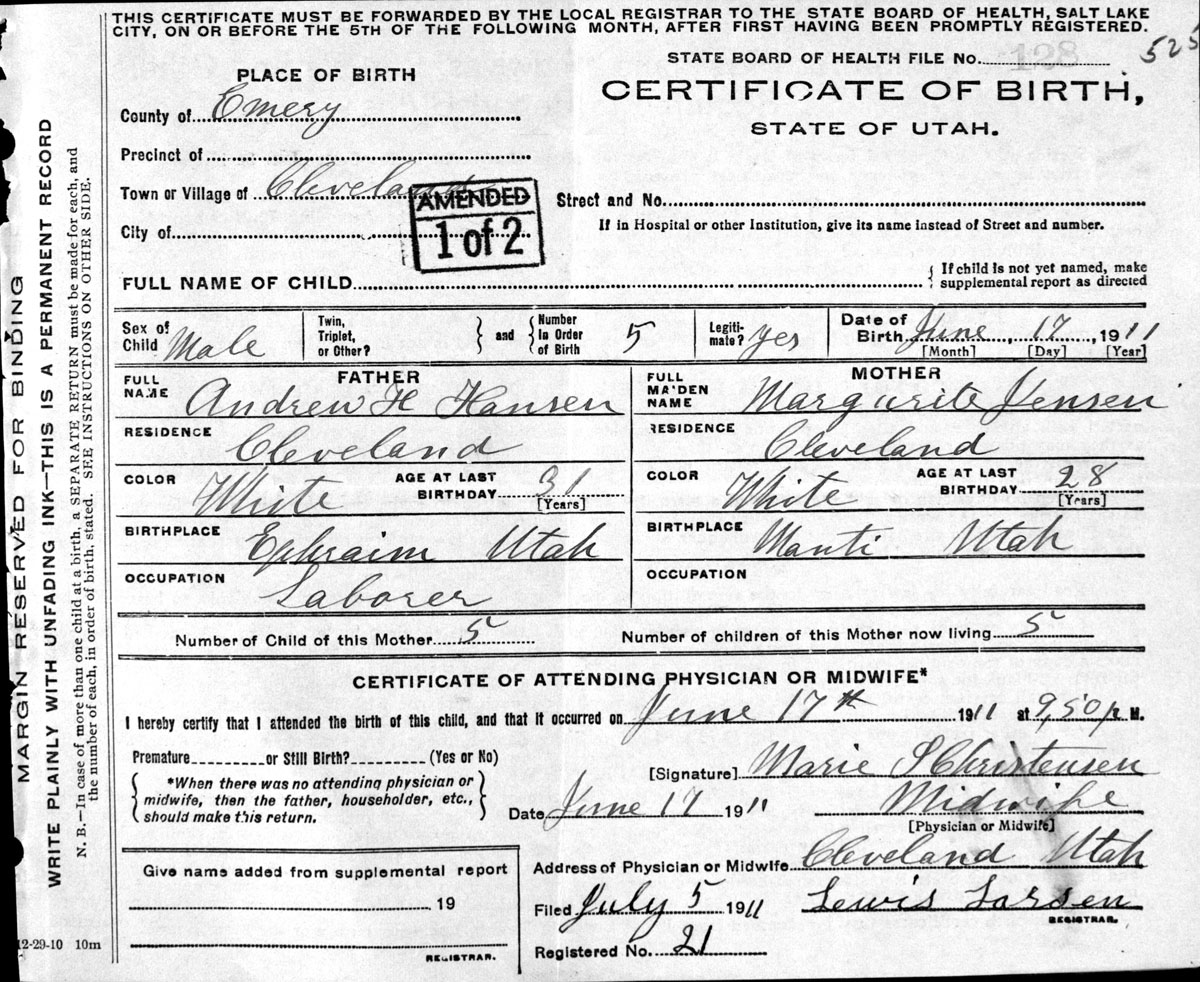 THIS CERTIFICATE MUST BE FORWARDED BY THE LOCAL REGISTRAR TO THE STATE BOARD OF HEALTH, SALT LAKE
CITY, ON OR BEFORE THE 5TH OF THE FOLLOWING MONTH, AFTER FIRST HAVING BEEN PROMPTLY REGISTERED.
525
STATE BOARD OF HEALTH FILE No. 128
PLACE OF BIRTH
CERTIFICATE OF BIRTH,
STATE OF UTAH.
County of Emery
Precinct of
Town or Village of Cleveland
AMENDED
1 of 2
Street and No.
City of
If in Hospital or other Institution, give its name instead of Street and number.
FULL NAME OF CHILD
{ If child is not yet named, make
supplemental report as directed
Sex of Child Male
Twin, Triplet, or Other?
} and { Number in Order of Birth 5
Legiti-mate? yes
Date of Birth June 17, 1911
[Month] [Day] [Year]
FATHER
FULL NAME Andrew H Hansen
RESIDENCE Cleveland
COLOR White AGE AT LAST BIRTHDAY 31 [Years]
BIRTHPLACE Ephraim Utah
OCCUPATION Laborer
MOTHER
FULL MAIDEN NAME Marguerite Jensen
RESIDENCE Cleveland
COLOR White AGE AT LAST BIRTHDAY 28 [Years]
BIRTHPLACE Manti Utah
OCCUPATION
Number of Child of this Mother 5 Number of children of this Mother now living 5
CERTIFICATE OF ATTENDING PHYSICIAN OR MIDWIFE*
I hereby certify that I attended the birth of this child, and that it occurred on June 17th 1911 at 9,50 p. M.
Premature or Still Birth? (Yes or No)
{ *When there was no attending physician or
midwife, then the father, householder, etc.,
should make this return. }
[Signature] Marie S Christensen
Date June 17 1911 Midwife
[Physician or Midwife]
Give name added from supplemental report
19
REGISTRAR.
Address of Physician or Midwife Cleveland Utah
Filed July 5 1911 Lewis Larsen
REGISTRAR.
Registered No. 21
12-29-10 10m
MARGIN RESERVED FOR BINDING
WRITE PLAINLY WITH UNFADING INK—THIS IS A PERMANENT RECORD
N. B.—In case of more than one child at a birth, a SEPARATE RETURN must be made for each, and
the number of each, in order of birth, stated. SEE INSTRUCTIONS ON OTHER SIDE.